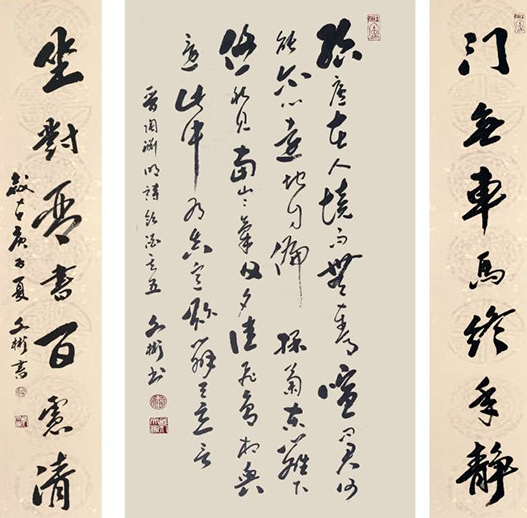 门无車馬终年靜
結廬在人境而無車馬喧問君何
能尔心遠地自偏採菊東籬下
悠然見南山々氣日夕佳飛鳥相與
還此中有真意欲辨已忘言
晉陶淵明詩飲酒之五 文彬书
坐對書百慮清
歲在庚子夏 文彬書